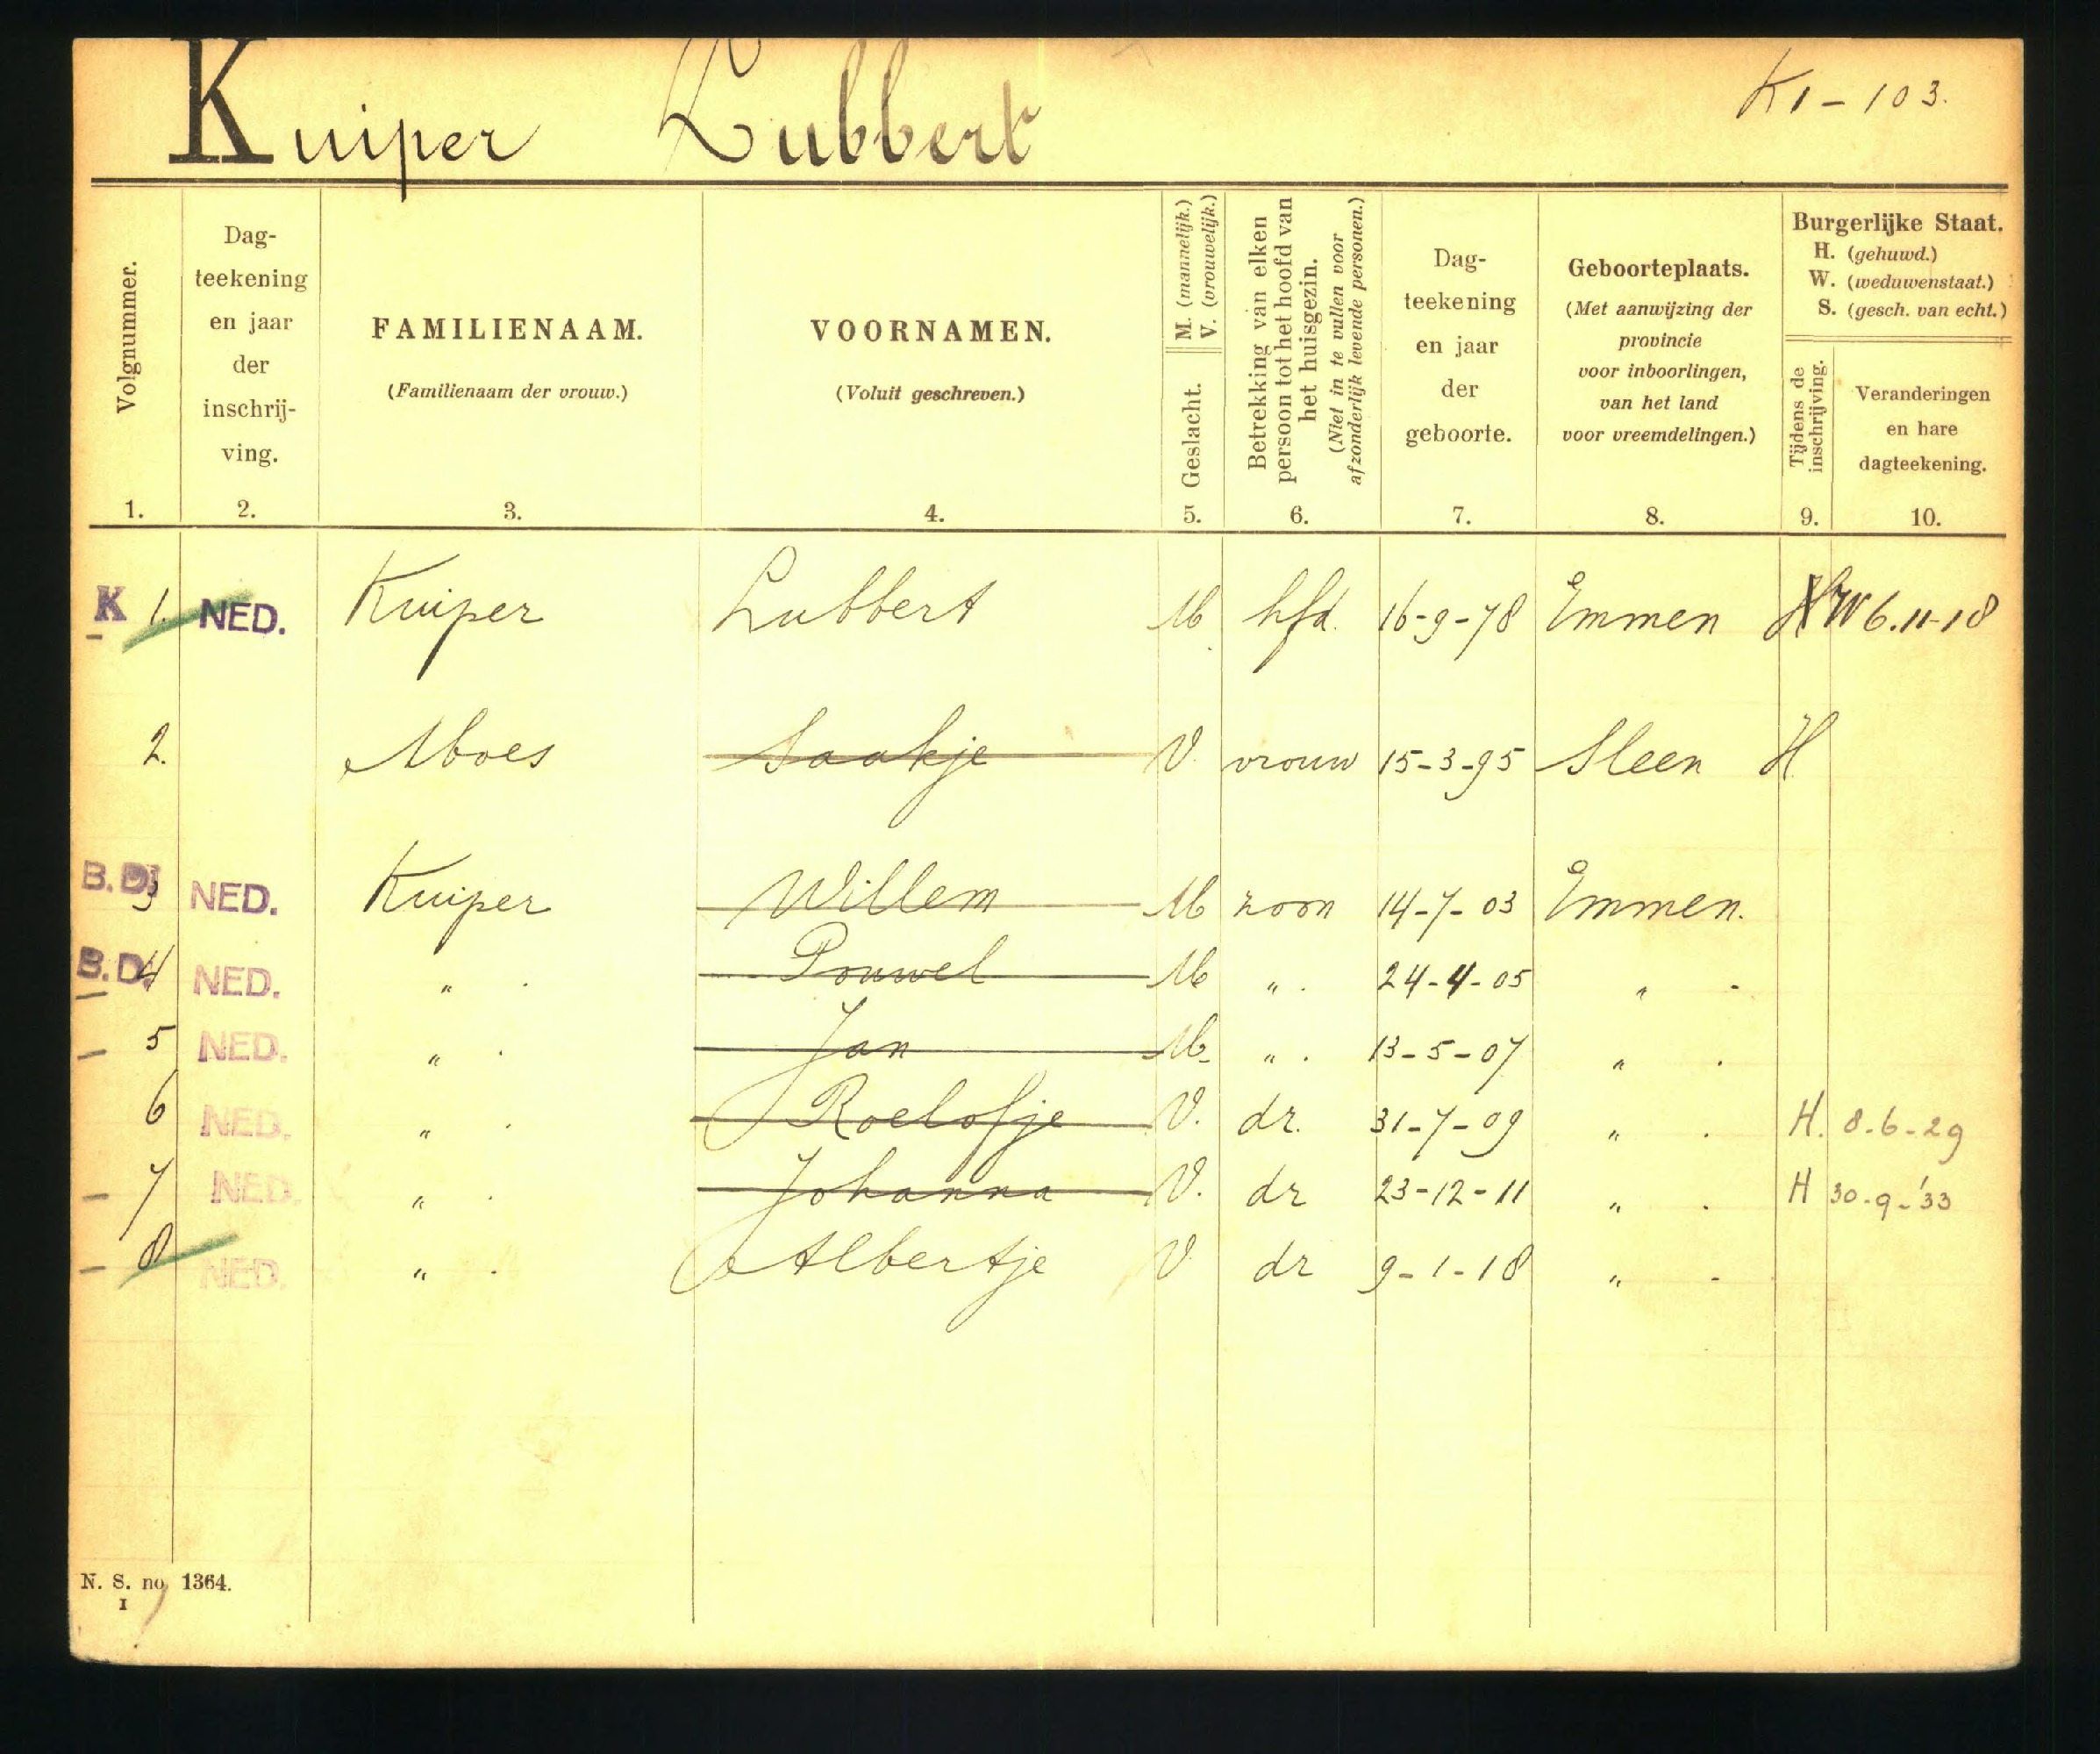 Kuiper Lubbert K1-103.
Volgnummer.
1.
Dag-
teekening
en jaar
der
inschrij-
ving.
2.
FAMILIENAAM.
(Familienaam der vrouw.)
3.
VOORNAMEN.
(Voluit geschreven.)
4.
M. (mannelijk.)
V. (vrouwelijk.)
Geslacht.
5.
Betrekking van elken
persoon tot het hoofd van
het huisgezin.
(Niet in te vullen voor
afzonderlijk levende personen.)
6.
Dag-
teekening
en jaar
der
geboorte.
7.
Geboorteplaats.
(Met aanwijzing der
provincie
voor inboorlingen,
van het land
voor vreemdelingen.)
8.
Burgerlijke Staat.
H. (gehuwd.)
W. (weduwenstaat.)
S. (gesch. van echt.)
Tijdens de
inschrijving.
9.
Veranderingen
en hare
dagteekening.
10.
K 1. NED. Kuiper Lubbert M hfd. 16-9-78 Emmen H W 6.11-18
2. Moes Saakje V. vrouw 15-3-95 Sleen H
B.D. 3 NED. Kuiper Willem M zoon 14-7-03 Emmen.
B.D. 4 NED. " Pouwel M " 24-4-05 "
5 NED. " Jan M. " 13-5-07 "
6 NED. " Roelofje V. dr. 31-7-09 " H. 8-6-29
7 NED. " Johanna V. dr 23-12-11 " H 30-9-'33
8 NED. " Albertje V dr 9-1-18 "
N. S. no. 1364.
I